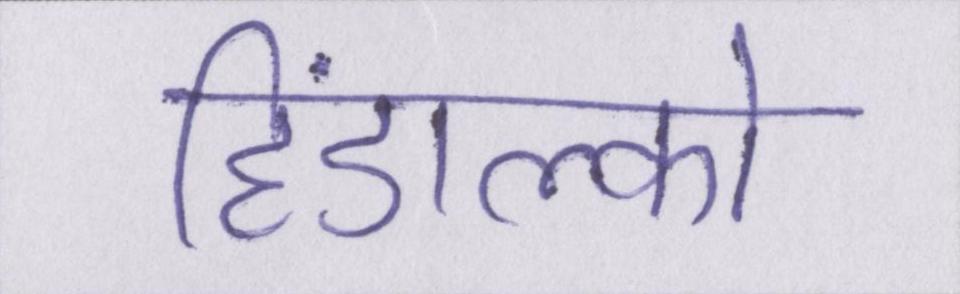 हिंडाल्को